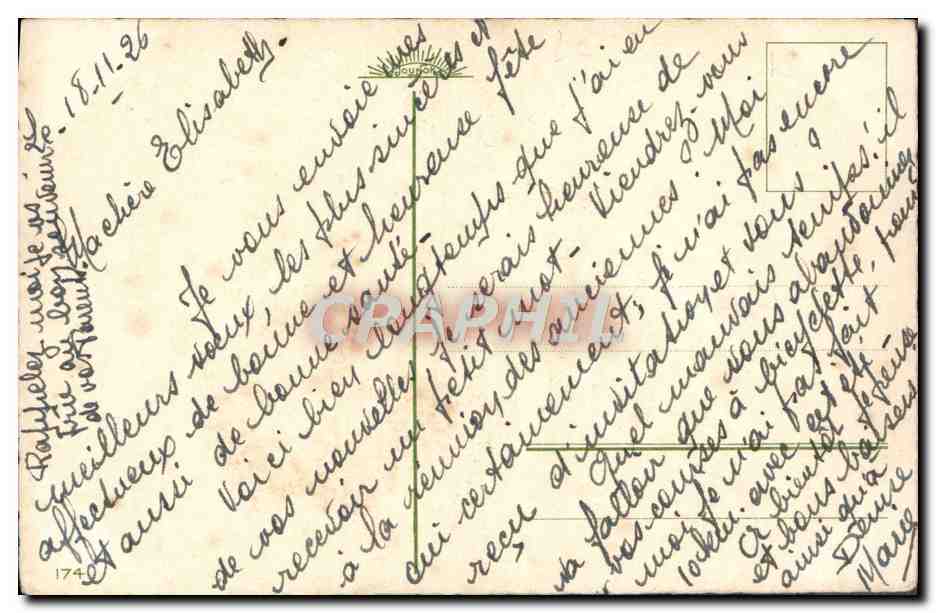 18-11-26
Ma chère Elisabeth
Je vous envoie mes
meilleurs vœux, les plus sincères et
affectueux de bonne et heureuse fête
et aussi de bonne santé
Voici bien longtemps que j'ai eu
de vos nouvelles je serais heureuse de
recevoir un petit mot - Viendrez-vous
à la réunion des anciennes. Moi
oui certainement, je n'ai pas encore
reçu d'invitation, et vous ?
Quel mauvais temps. il
va falloir que nous abandonnions
vos courses à bicyclette, pour
moi je n'ai pas fait
avec cet été.
A bientôt je pense
et bons baisers
ainsi qu'à
Denise
Marie
Rappelez moi je vs
prie au bon souvenir
de vos parents
JOUNOK
CRAPHIL
174